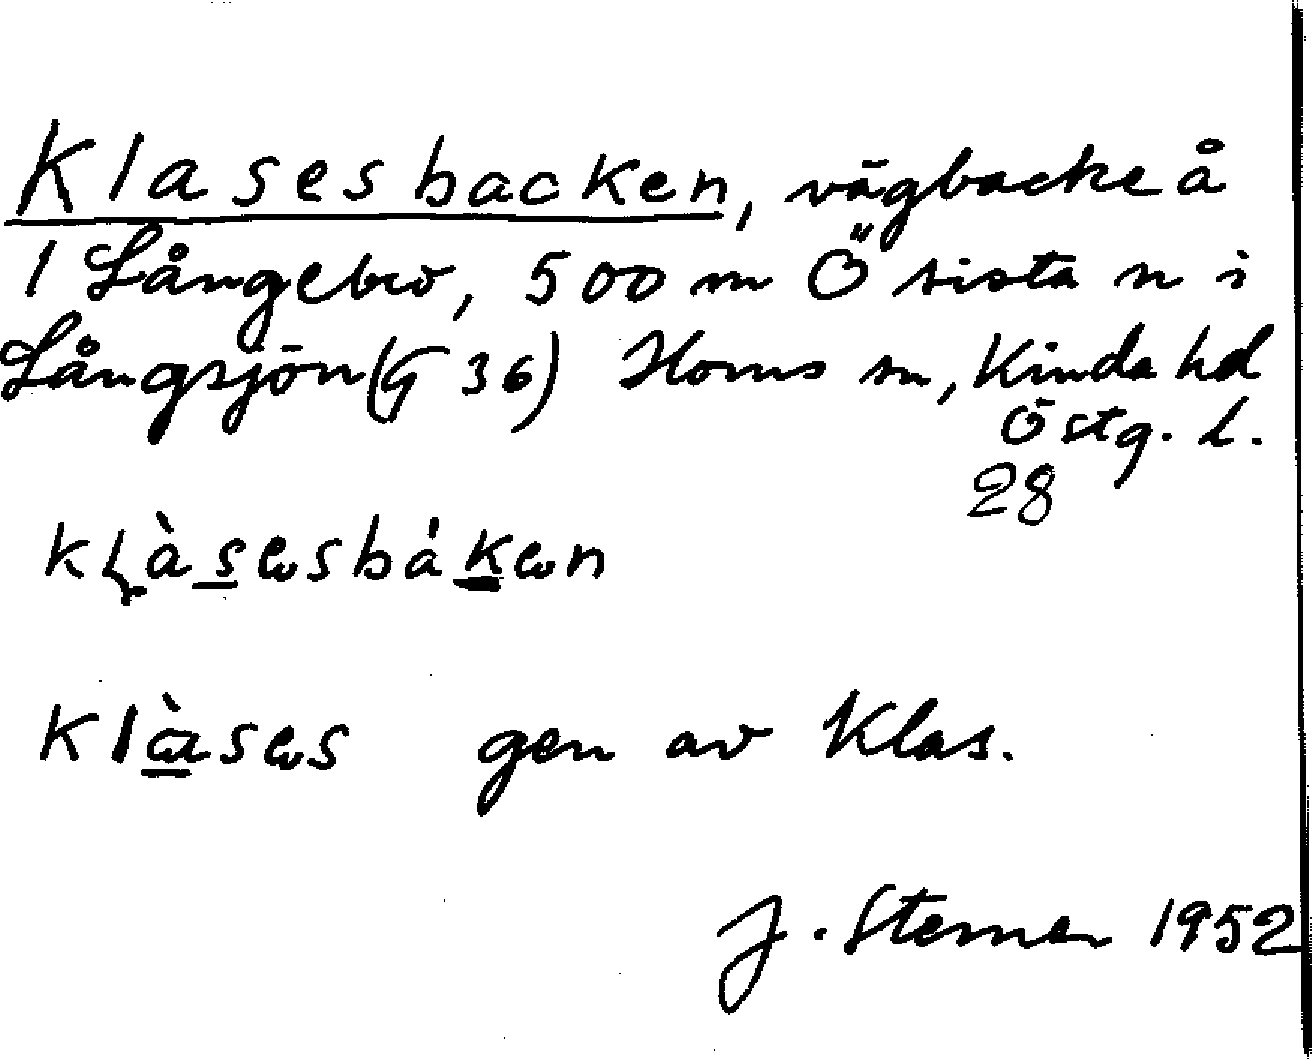 Klasesbacken, vägbacke å
1 Långebro, 500 m Ö sista n i
Långsjön (G 36) Horns sn, Kinda hd
Östg. l.
28
klàsesbáken
klàses gen av Klas.
J. Sterner 1952